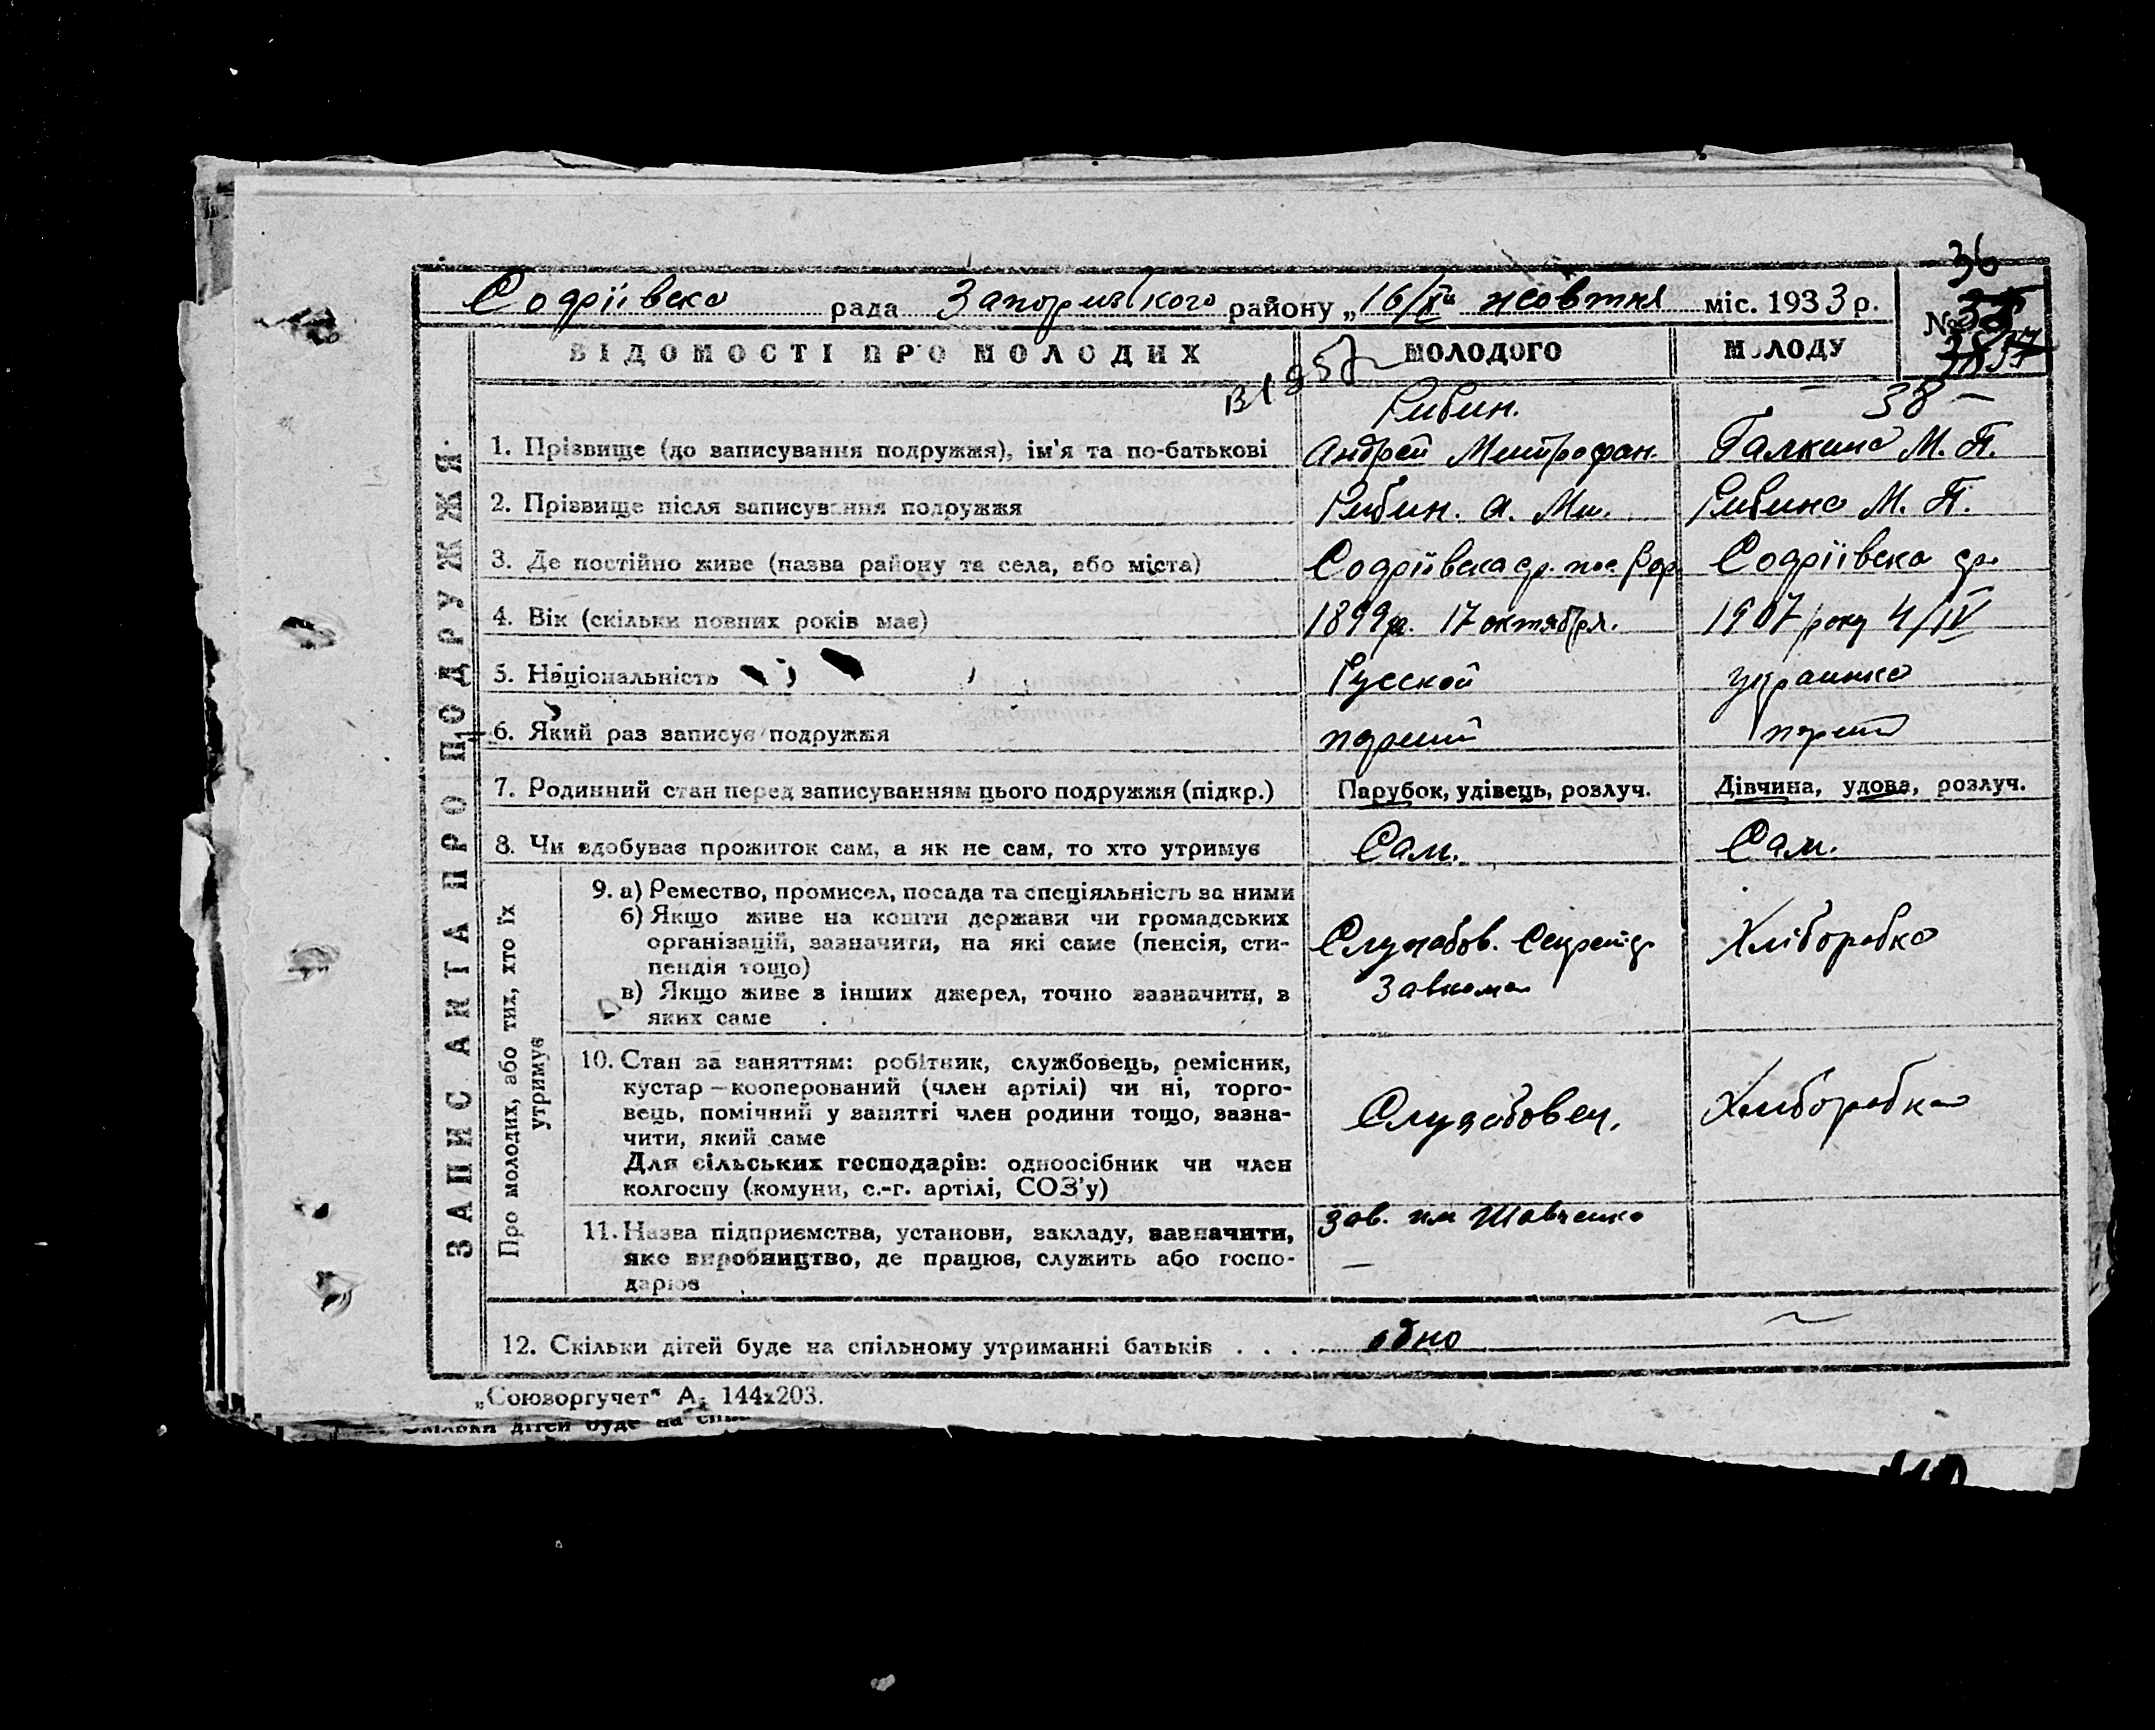 36
Содріївска рада Запоризького району „16/X жовтня міс. 1933 р.
№
ВІДОМОСТІ ПРО МОЛОДИХ
МОЛОДОГО
МОЛОДУ
38
Рибин.
1. Прізвище (до записування подружжя), ім'я та по-батькові
Андрей Митрофан.
Галкина М. П.
2. Прізвище після записування подружжя
Рибин. А. Ми.
Рибина М. П.
3. Де постійно живе (назва району та села, або міста)
Содріївска ср. пос.
Содріївска ср.
4. Вік (скільки повних років має)
1899р. 17 октября.
1907 року 4/IV
5. Національність
Русской
украинка
6. Який раз записує подружжя
перший
перший
7. Родинний стан перед записуванням цього подружжя (підкр.)
Парубок, удівець, розлуч.
Дівчина, удова, розлуч.
8. Чи здобуває прожиток сам, а як не сам, то хто утримує
Сам.
Сам.
9. а) Ремество, промисел, посада та спеціяльність за ними
б) Якщо живе на кошти держави чи громадських
організацій, зазначити, на які саме (пенсія, сти-
пендія тощо)
в) Якщо живе з інших джерел, точно зазначити, з
яких саме
Служабов. Секретар
Завкома
Хліборобка
10. Стан за заняттям: робітник, службовець, ремісник,
кустар — кооперований (член артілі) чи ні, торго-
вець, помічний у занятті член родини тощо, зазна-
чити, який саме
Для сільських господарів: одноосібник чи член
колгоспу (комуни, с.-г. артілі, СОЗ'у)
Служабовец.
Хліборобка
11. Назва підприємства, установи, закладу, зазначити,
яке виробництво, де працює, служить або госпо-
дарює
Зав. им Шавченко
—
12. Скільки дітей буде на спільному утриманні батьків . . .
одно
ЗАПИС АКТА ПРО ПОДРУЖЖЯ.
Про молодих, або тих, хто їх
утримує
„Союзоргучет" А₅ 144x203.